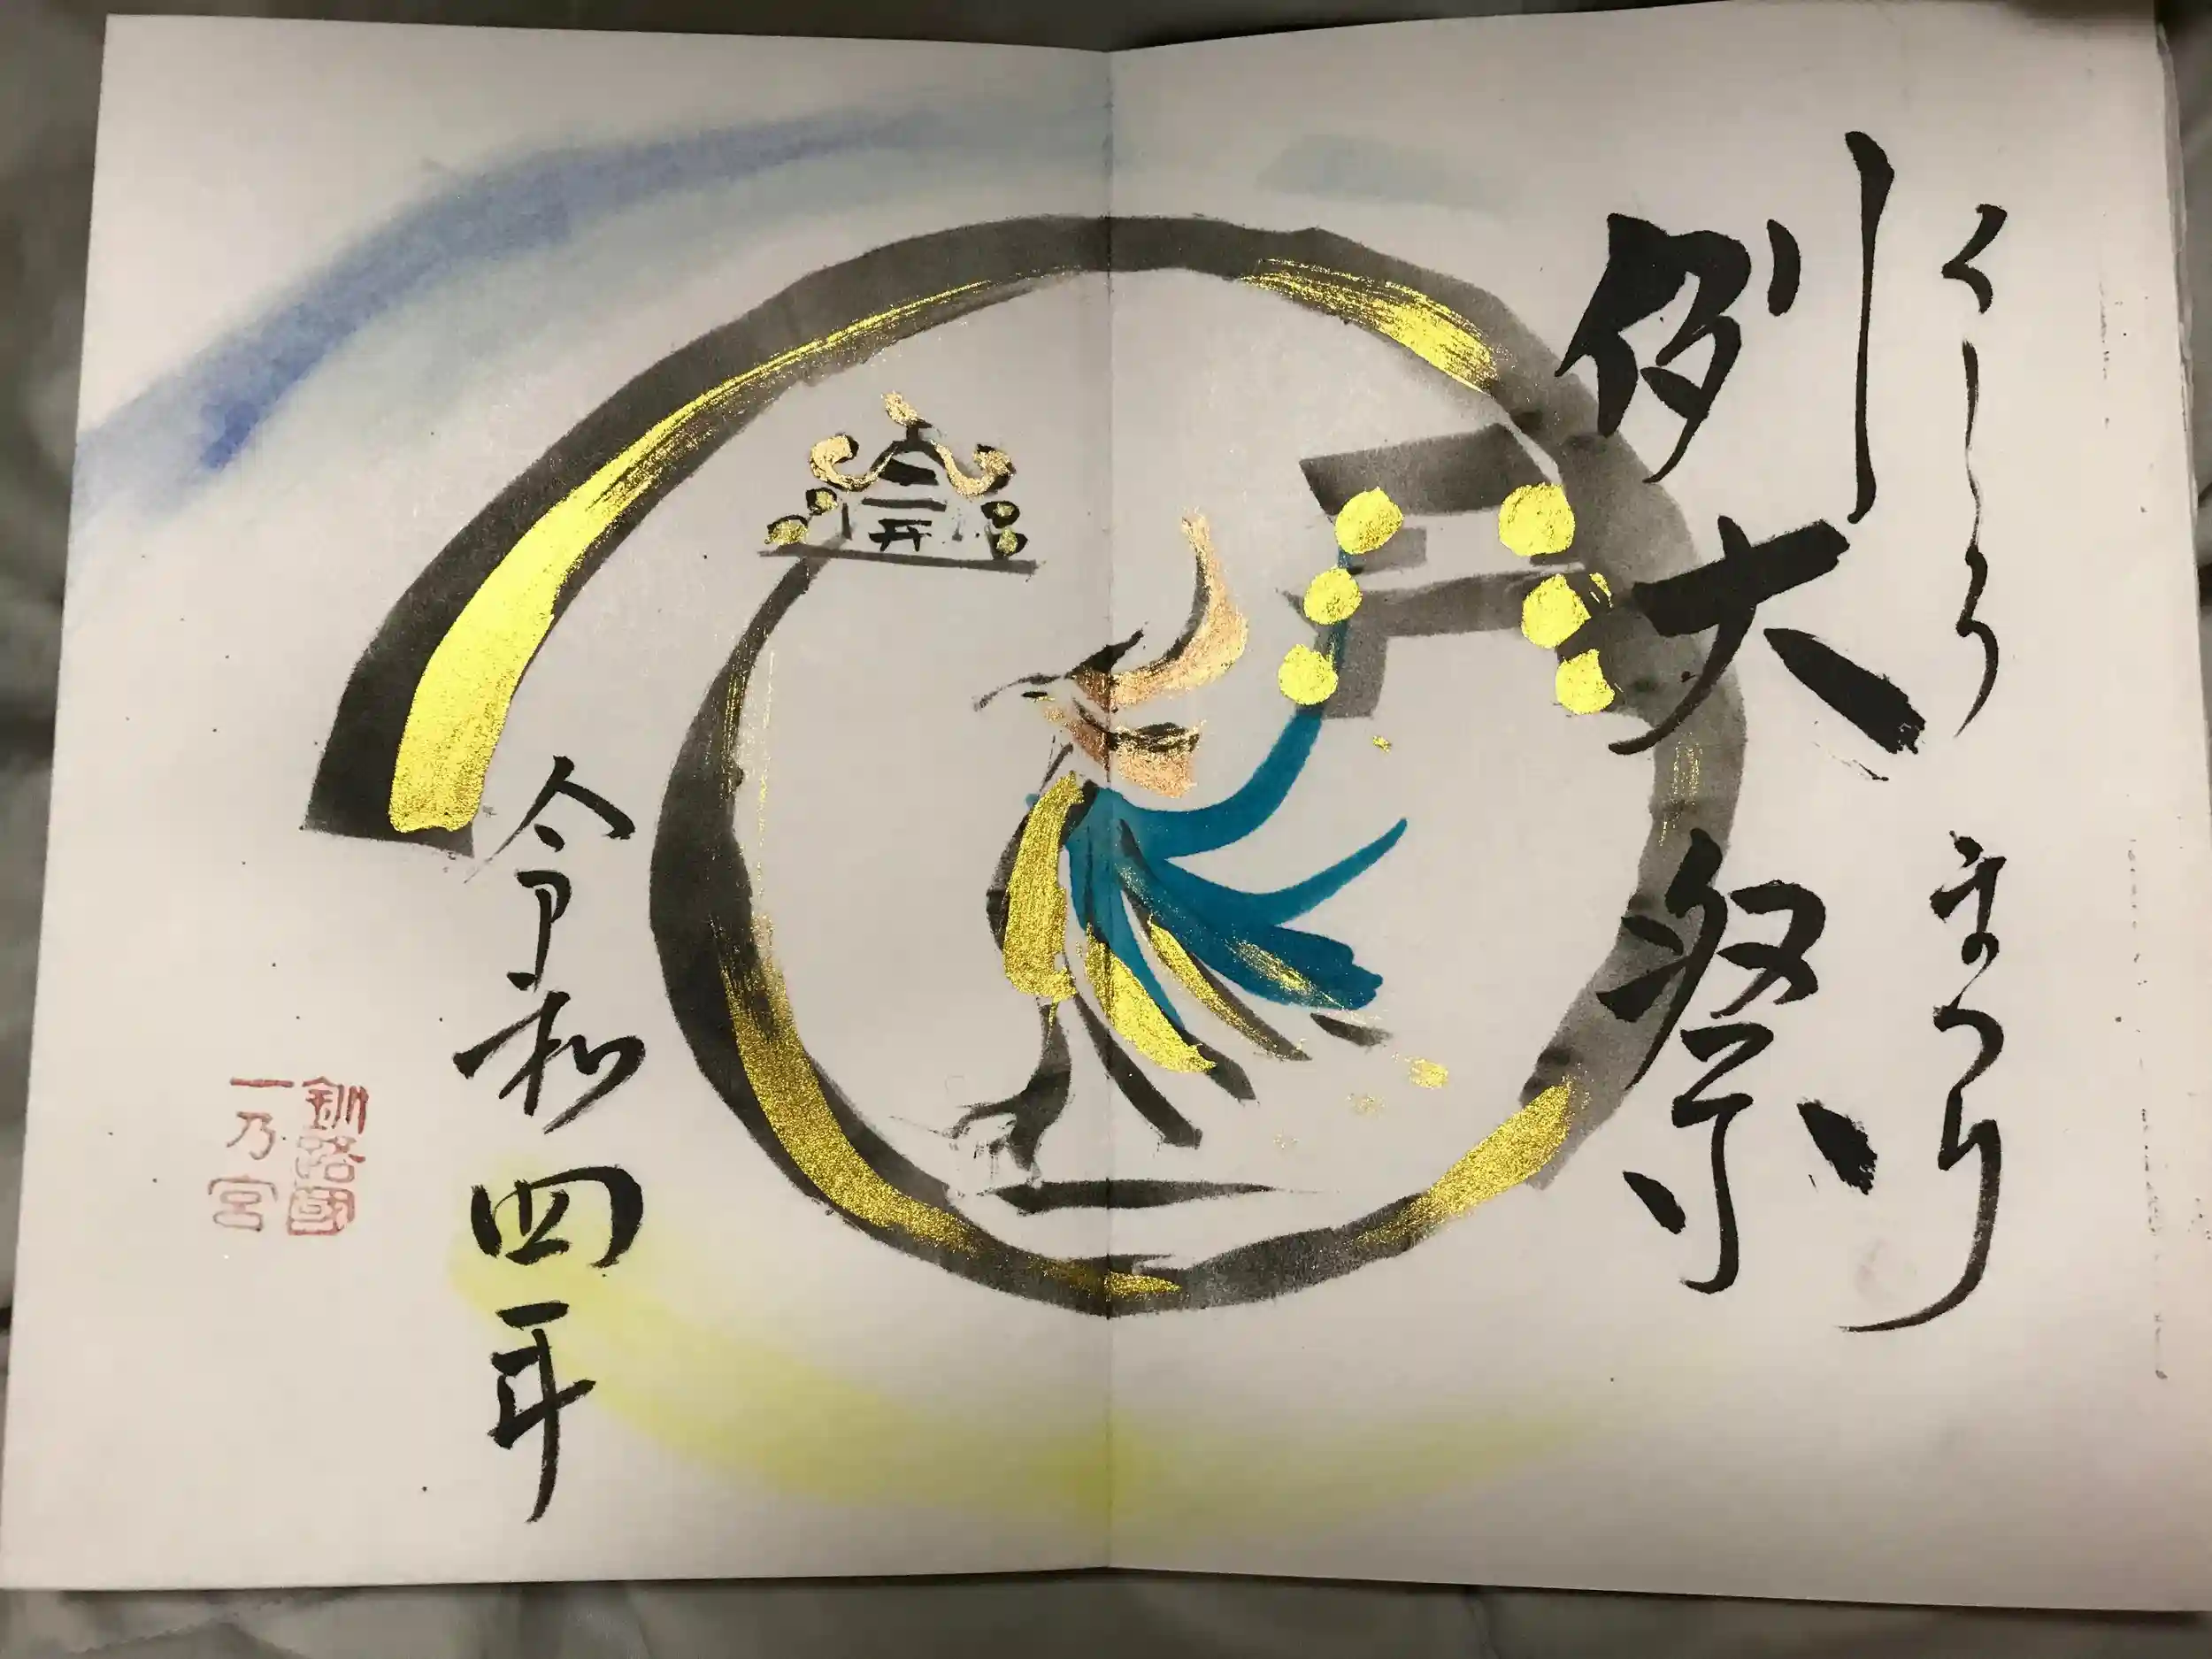 くしろ まつり
例大祭
令和四年
釧路國
一乃宮